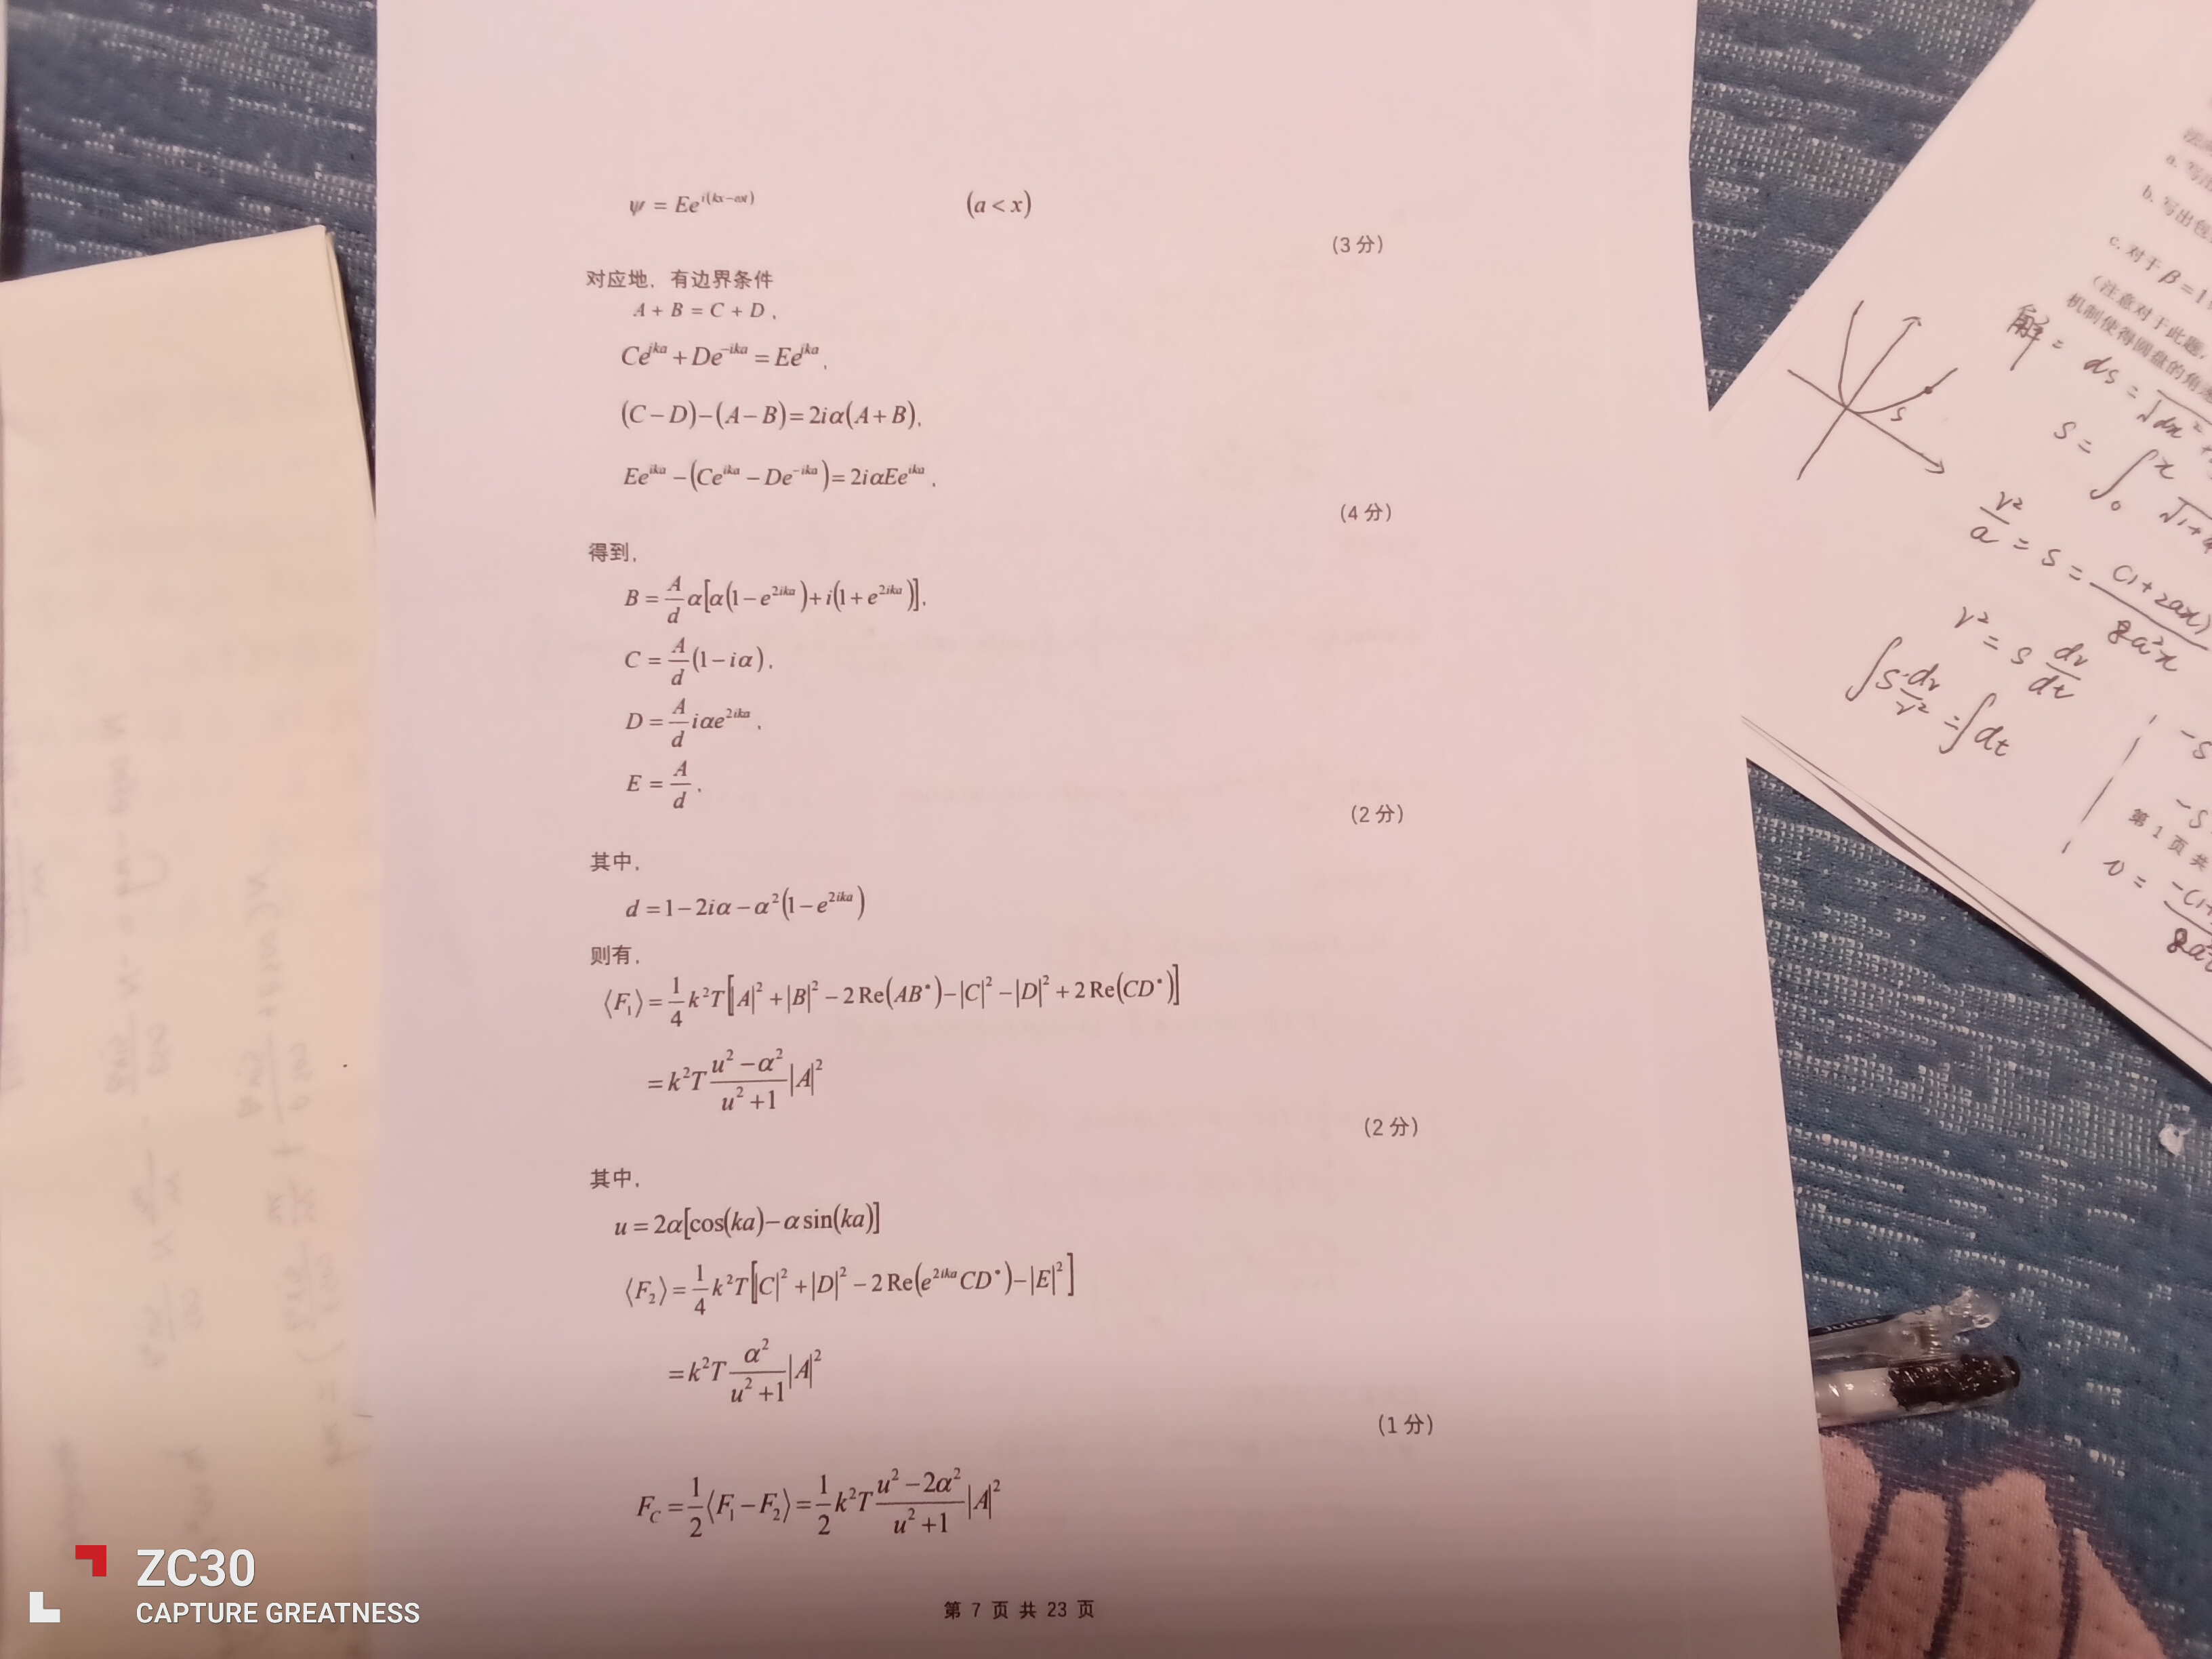 ψ = Ee^{i(kx−ωt)} (a < x)
(3 分)
对应地，有边界条件
A + B = C + D，
Ce^{ika} + De^{−ika} = Ee^{ika}，
(C − D) − (A − B) = 2iα(A + B)，
Ee^{ika} − (Ce^{ika} − De^{−ika}) = 2iαEe^{ika}，
(4 分)
得到，
B = \frac{A}{d} α[α(1 − e^{2ika}) + i(1 + e^{2ika})]，
C = \frac{A}{d} (1 − iα)，
D = \frac{A}{d} iαe^{2ika}，
E = \frac{A}{d}，
(2 分)
其中，
d = 1 − 2iα − α²(1 − e^{2ika})
则有，
⟨F₁⟩ = \frac{1}{4} k²T[|A|² + |B|² − 2 Re(AB*) − |C|² − |D|² + 2 Re(CD*)]
= k²T \frac{u² − α²}{u² + 1} |A|²
(2 分)
其中，
u = 2α[cos(ka) − α sin(ka)]
⟨F₂⟩ = \frac{1}{4} k²T[|C|² + |D|² − 2 Re(e^{2ika}CD*) − |E|²]
= k²T \frac{α²}{u² + 1} |A|²
(1 分)
F_C = \frac{1}{2} ⟨F₁ − F₂⟩ = \frac{1}{2} k²T \frac{u² − 2α²}{u² + 1} |A|²
第 7 页 共 23 页
a. 写
b. 写出包
c. 对于 β = 1
(注意对于此题，
机制使得圆盘的角
解 = ds = √dx² +
s = ∫₀^x √1+
\frac{v²}{a} = s = \frac{(1+2ax)}{8a²x}
v² = s \frac{dv}{dt}
∫ s \frac{dv}{v²} = ∫ dt
s
第 1 页 共
v =
ZC30
CAPTURE GREATNESS
juice